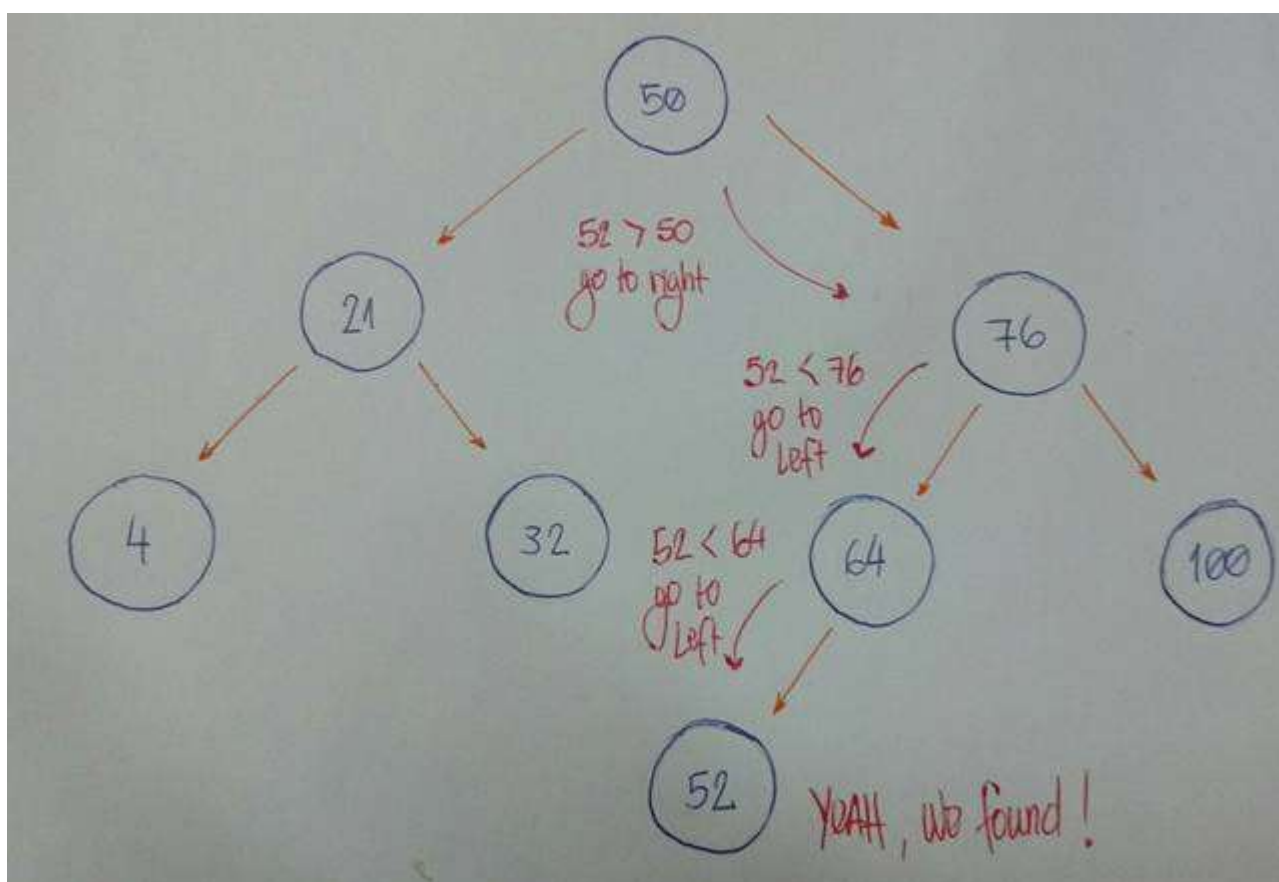 50
52 > 50
go to right
21
76
52 < 76
go to
Left
4
32
52 < 64
go to
Left
64
100
52
YEAH, we found!